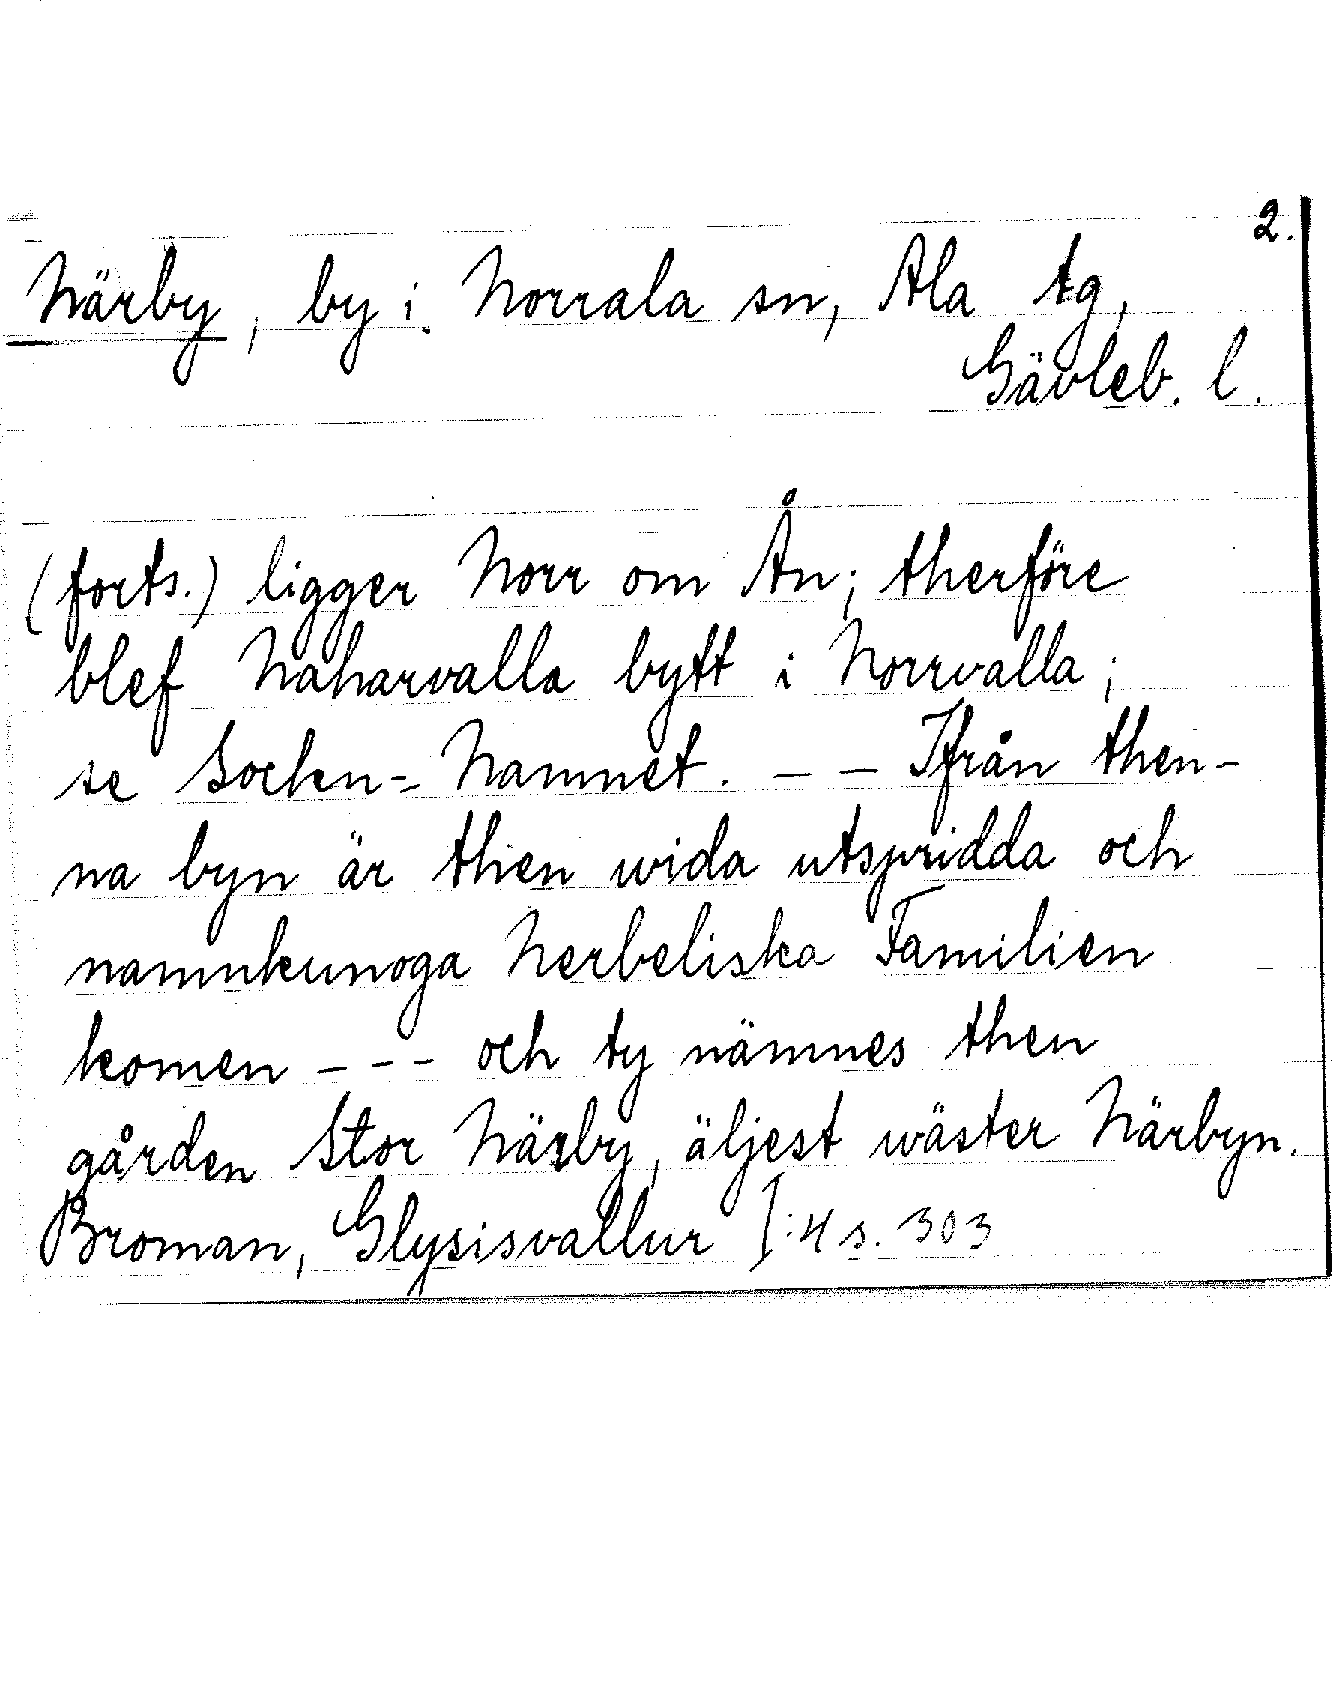 2.
Närby, by i Norrala sn, Ala tg,
Gävleb. l.
(forts.) ligger Norr om Ån; therföre
blef Naharvalla bytt i Norrvalla;
se Socken-Namnet. – – Ifrån then-
na byn är then wida utspridda och
namnkunoga Nerbeliska Familien
komen – – – och ty nämnes then
gården Stor Närby, äljest wäster Närbyn.
Broman, Glysisvallur I:4 s. 303